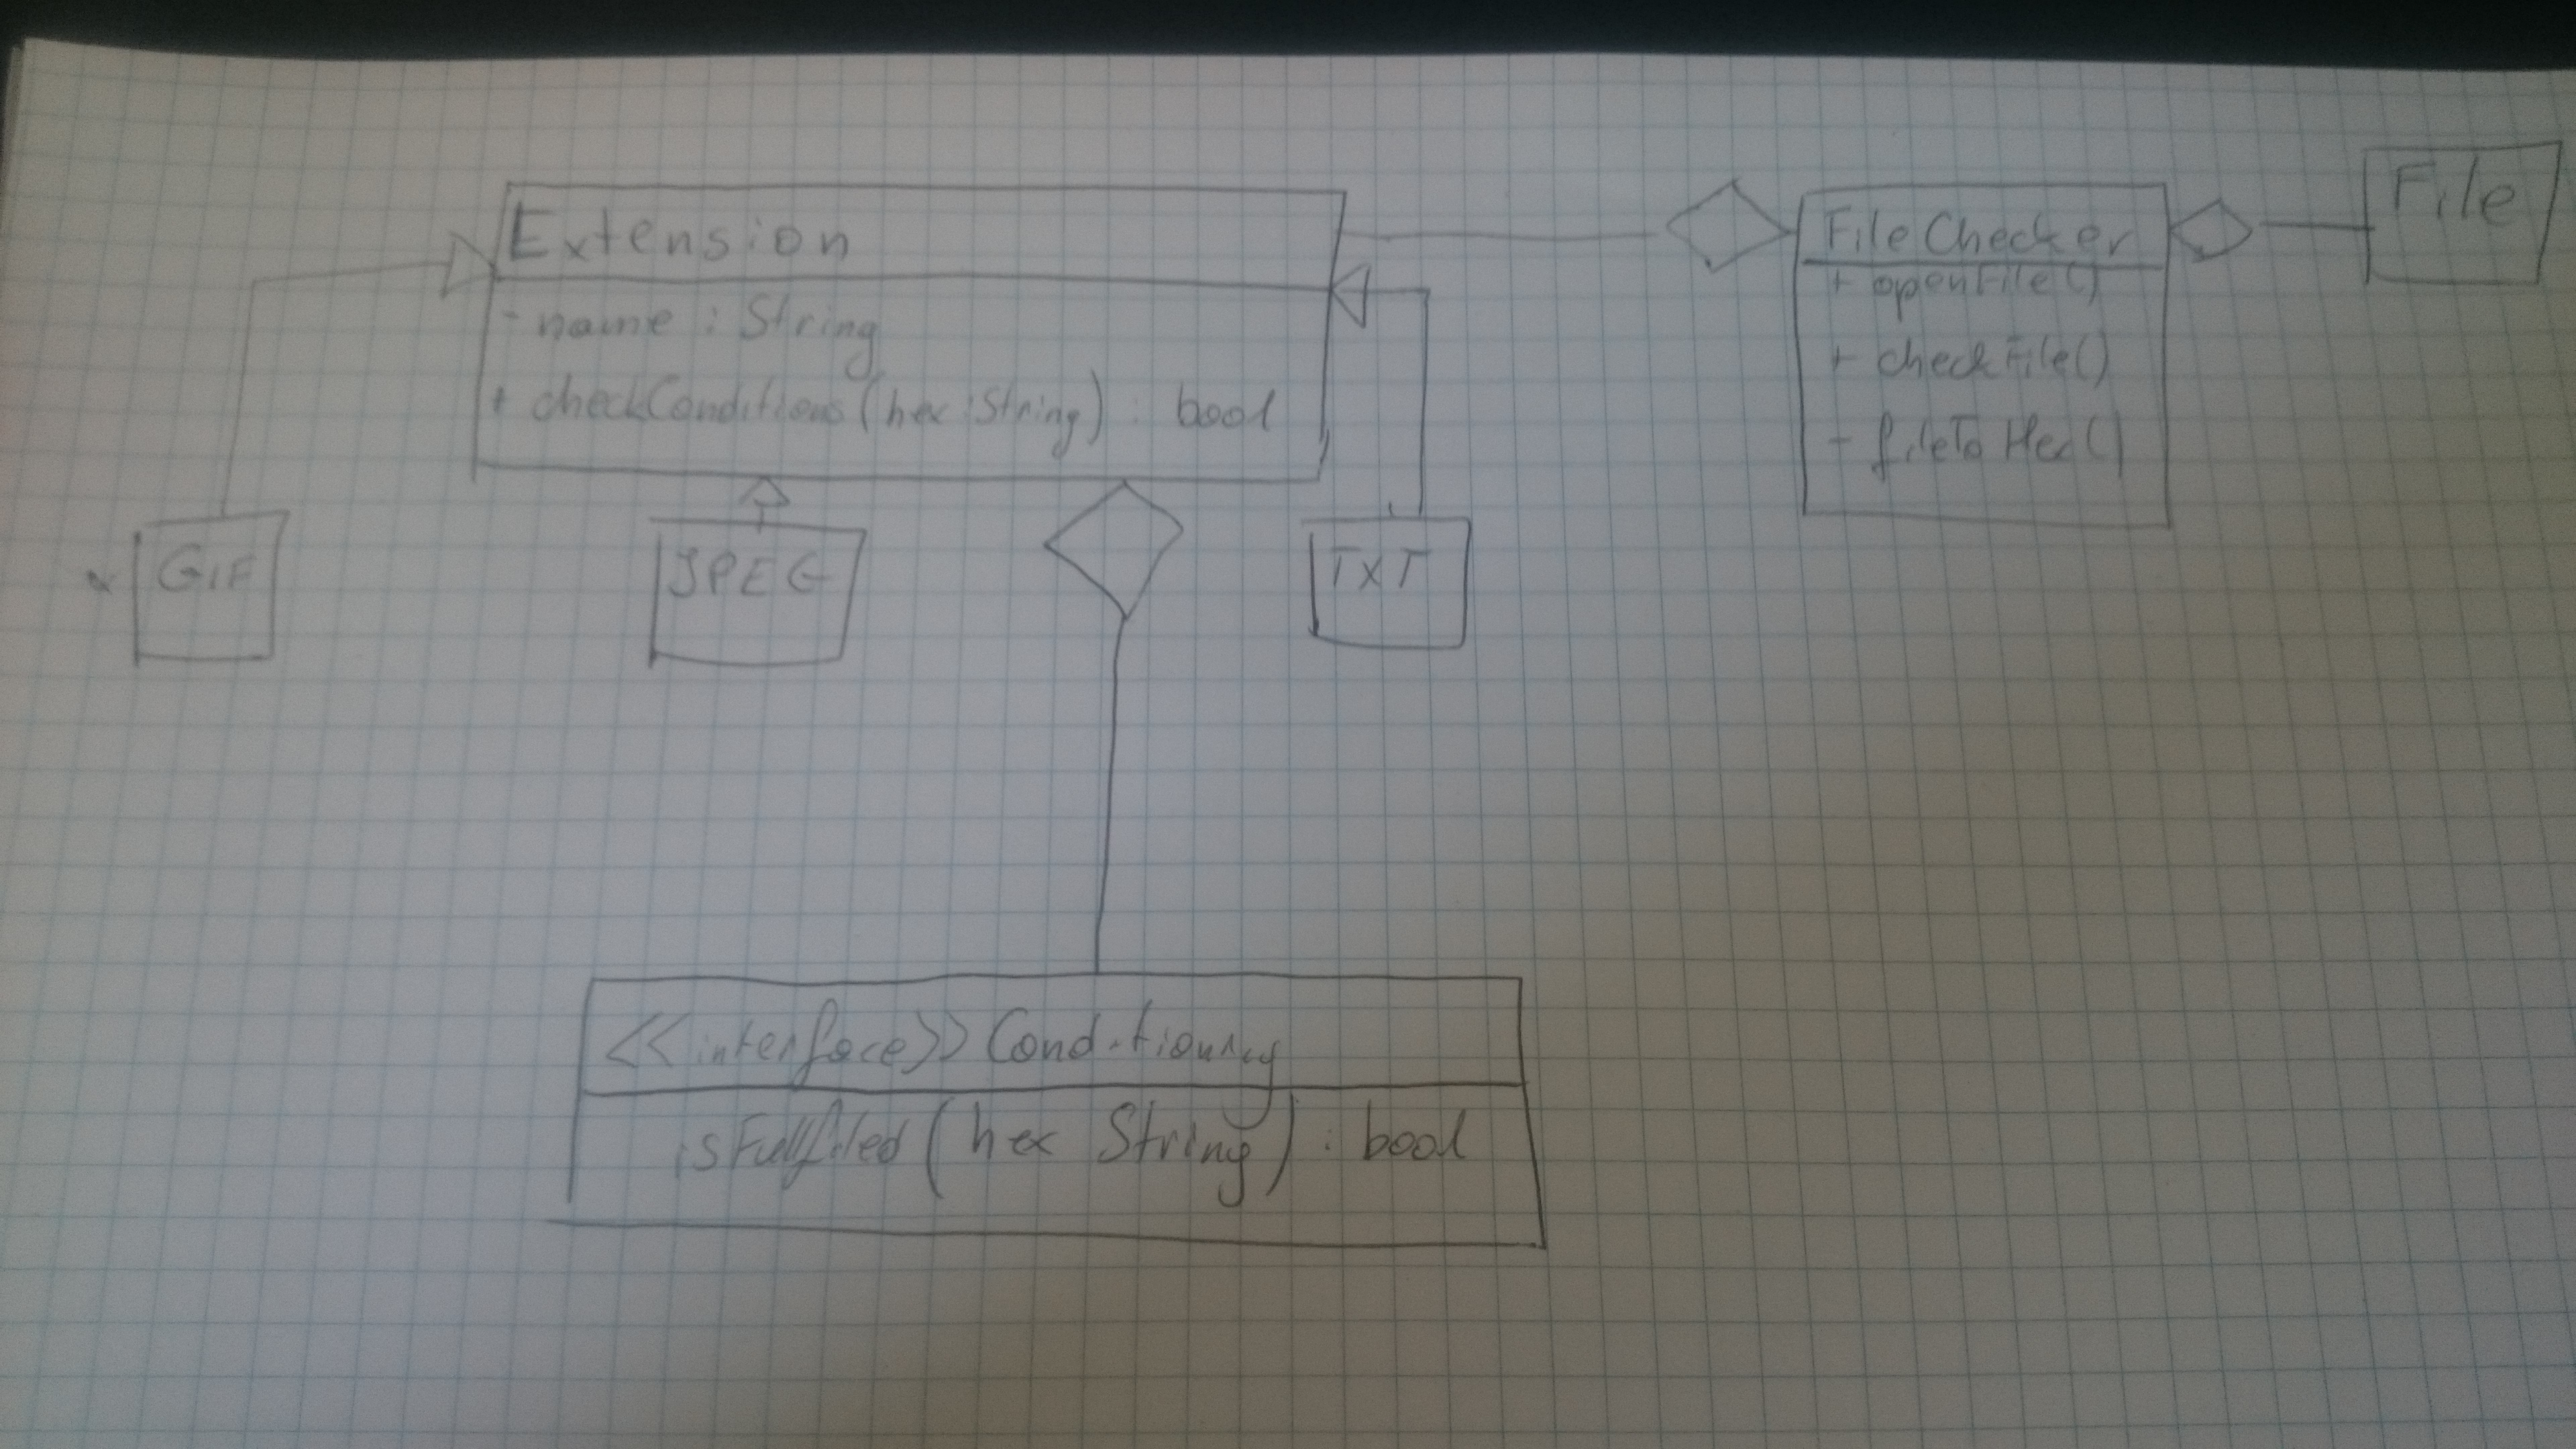 Extension
- name : String
+ checkConditions (hex : String) : bool
FileChecker
+ openFile()
+ checkFile()
- fileToHex()
File
GIF
JPEG
TXT
<<interface>>
isFullfiled (hex String) : bool